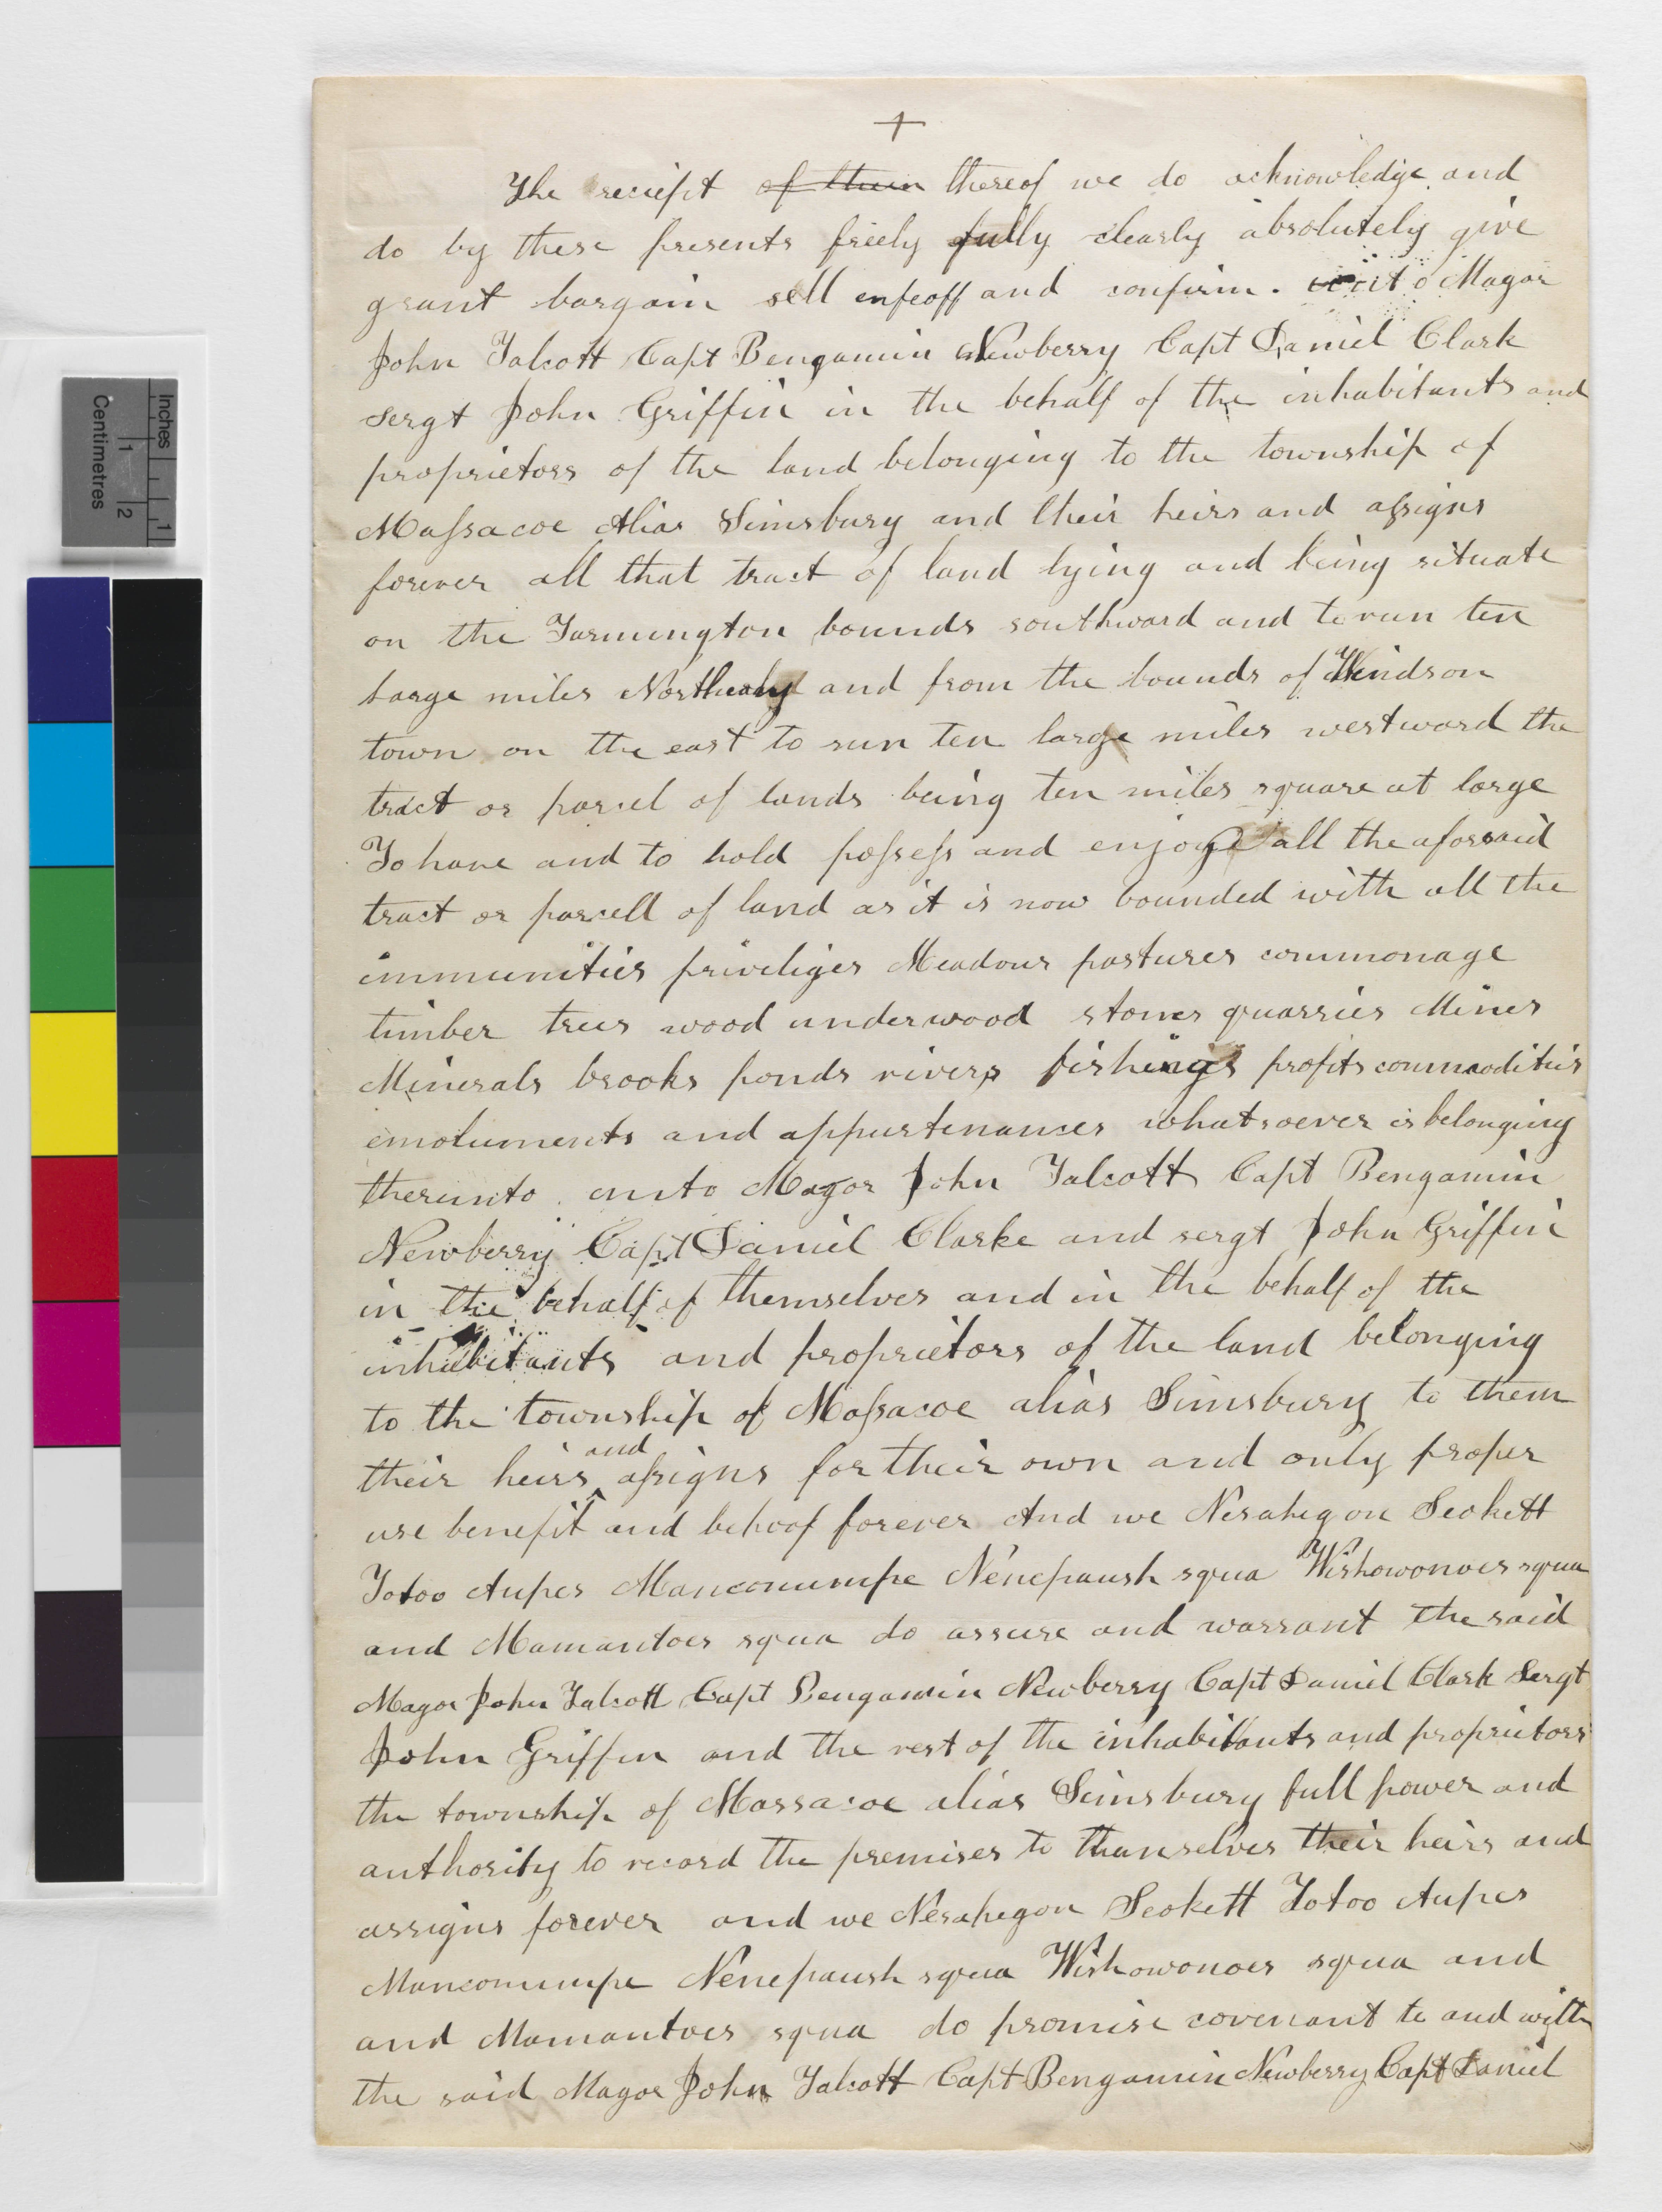 +
The reciept of thein thereof we do acknowledge and
do by these presents freely fully clearly absolutely give
grant bargain sell enfeoff and confirm. unto Magor
John Talcott Capt Bengamin Newberry Capt Daniel Clark
sergt John Griffin in the behalf of the inhabitants and
proprietors of the land belonging to the township of
Massacoe Alias Simsbury and their heirs and assigns
forever all that tract of land lying and being situate
on the Farmington bounds southward and to run ten
large miles Northerly and from the bounds of Windsor
town on the east to run ten large miles westward the
tract or parcel of lands being ten miles square at large
To have and to hold possess and enjoy all the aforsaid
tract or parcell of land as it is now bounded with all the
immunities priveliges Meadows pastures commonage
timber trees wood underwood stones quarries Mines
Minerals brooks ponds rivers fishings profits commodities
emoluments and appurtenances whatsoever is belonging
therunto unto Magor John Talcott Capt Bengamin
Newberry Capt Daniel Clarke and sergt John Griffin
in the behalf of themselves and in the behalf of the
inhabitants and proprietors of the land belonging
to the township of Massacoe alias Simsbury to them
their heirs and assigns for their own and only proper
use benefit and behoof forever And we Nesahegon Seokett
Totoo Aupes Manconumpe Nenepaush squa Wishowonoes squa
and Mamantoes squa do assure and warrant the said
Magor John Talcott Capt Bengamin Newberry Capt Daniel Clark Sergt
John Griffin and the rest of the inhabitants and proprietors
the township of Massacoe alias Simsbury full power and
authority to record the premises to themselves their heirs and
assigns forever and we Nesahegon Seokett Totoo Aupes
Manconumpe Nenepaush squa Wishowonoes squa and
and Mamantoes squa do promise covenant to and with
the said Magor John Talcott Capt Bengamin Newberry Capt Daniel
Inches
1
Centimetres
1 2